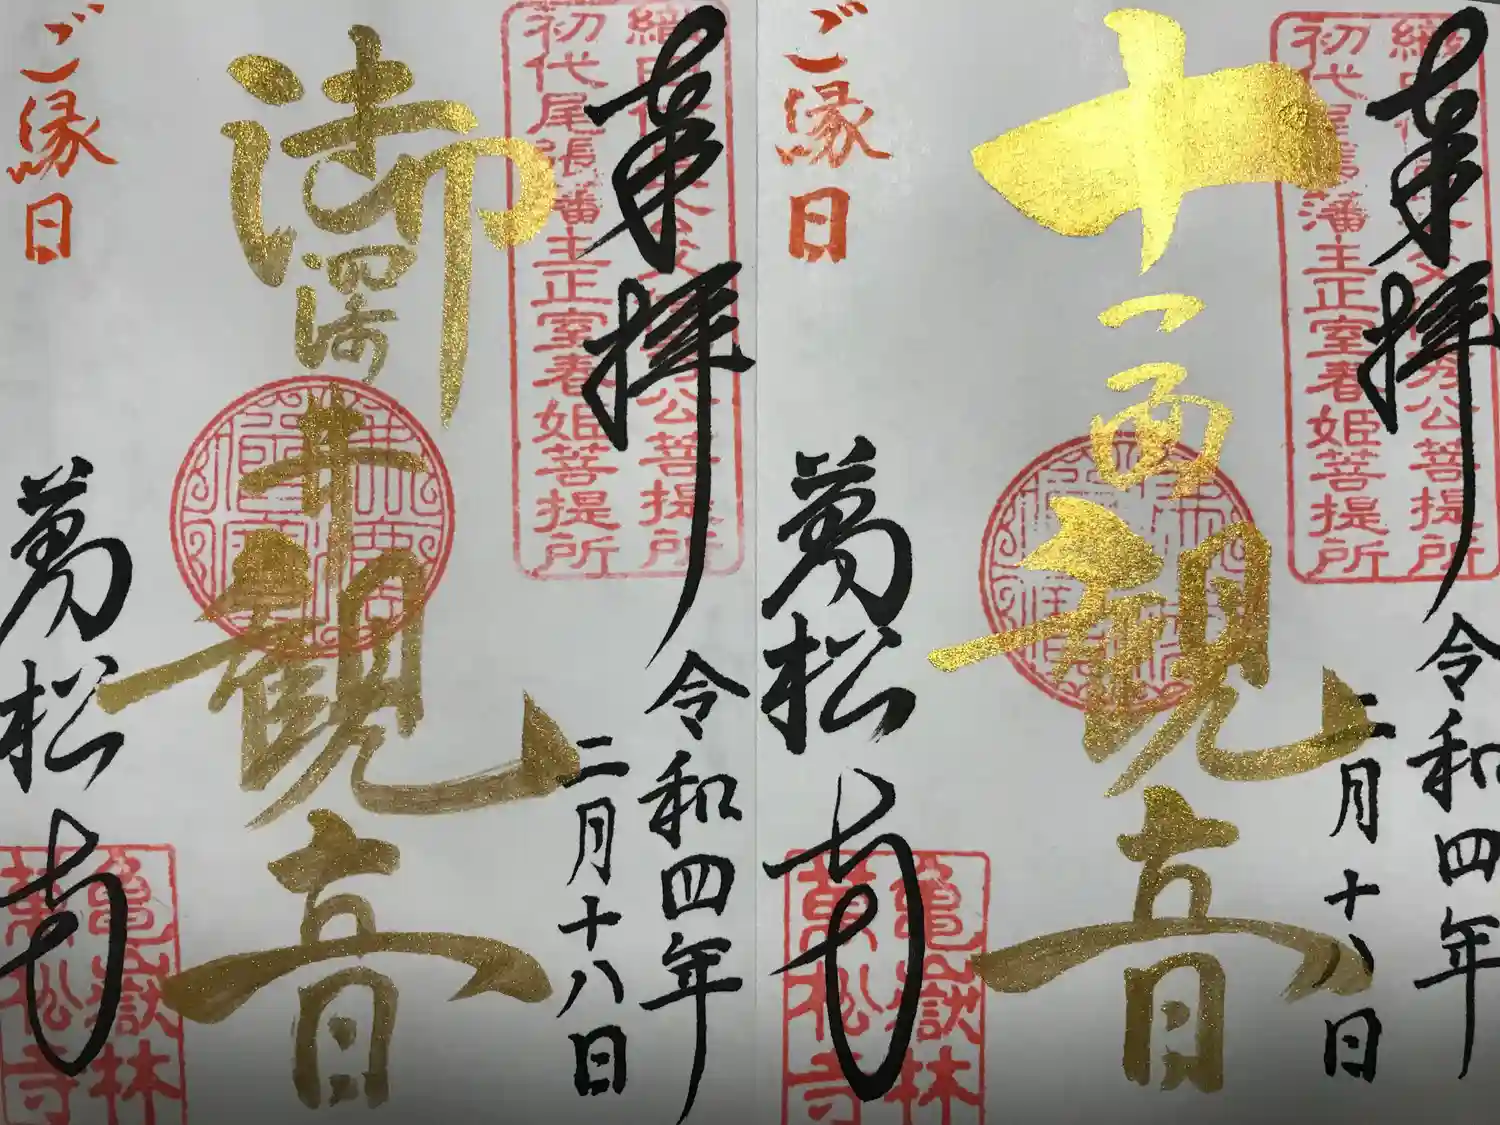 奉拝
令和四年
二月十八日
秀公菩提所
初代尾張藩主正室春姫菩提所
十一面観音
ご縁日
萬松寺
亀嶽林
萬松寺
奉拝
令和四年
二月十八日
秀公菩提所
初代尾張藩主正室春姫菩提所
御深井観音
ご縁日
萬松寺
亀嶽林
萬松寺